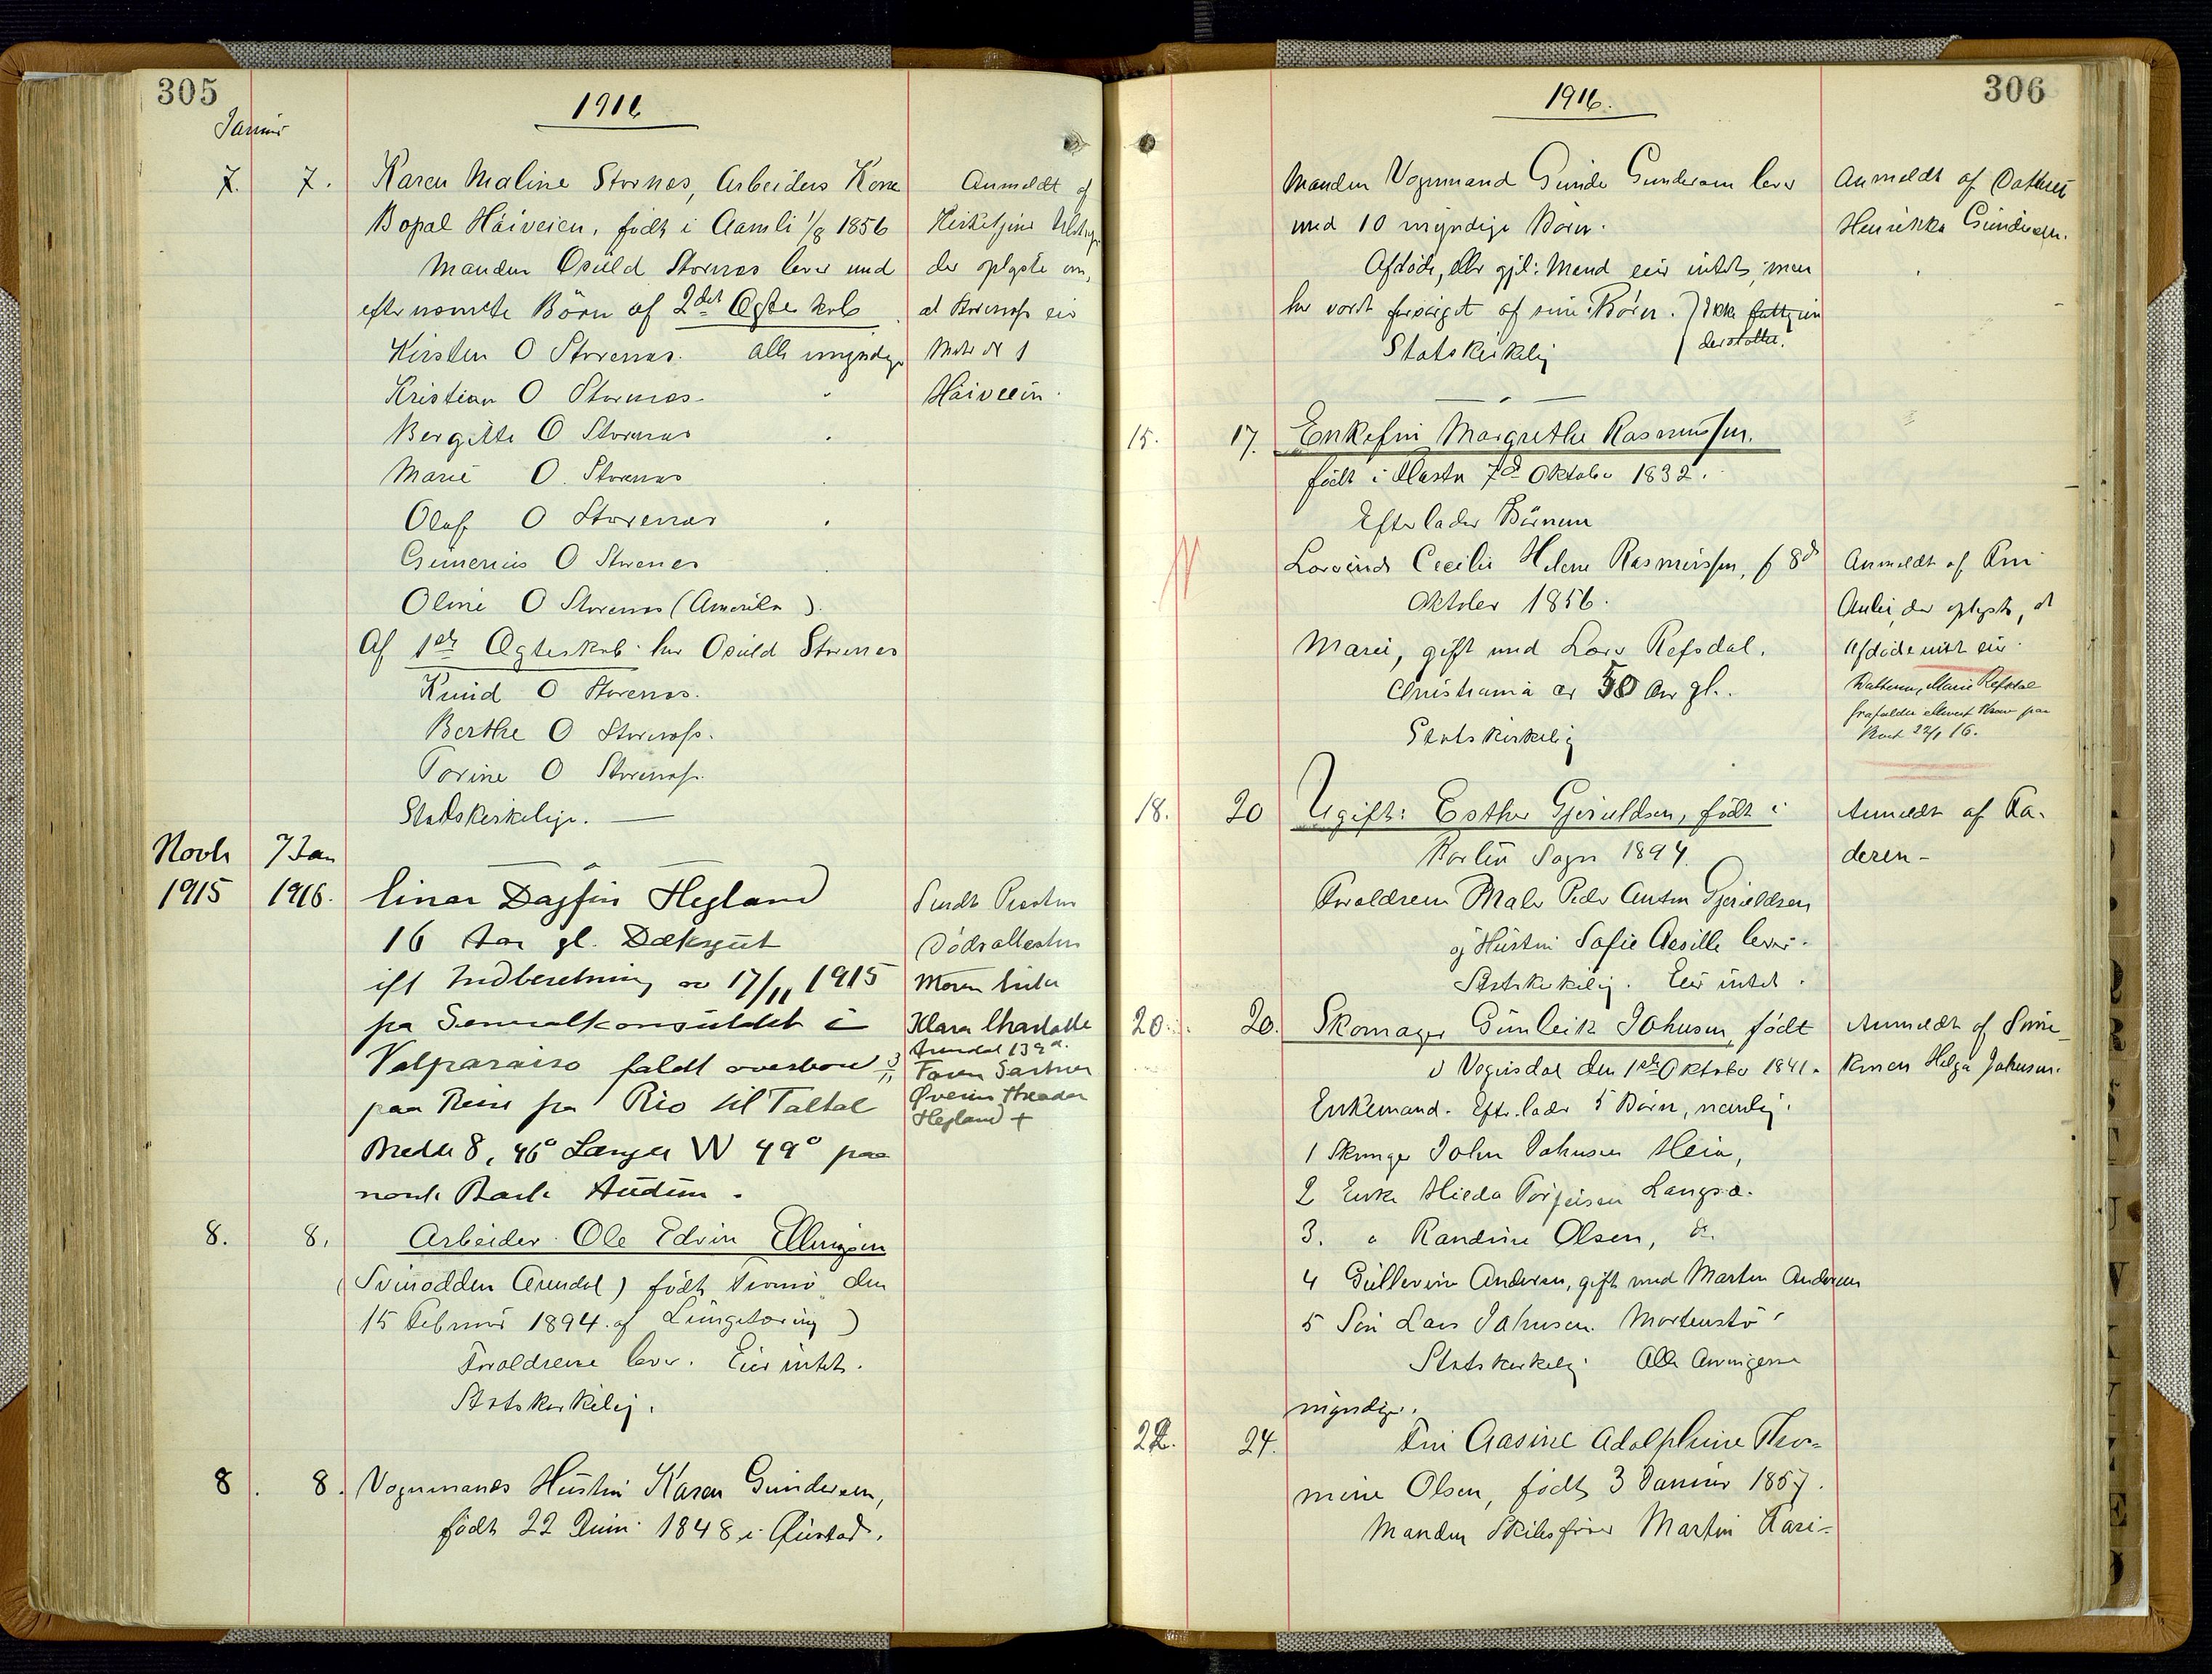 305
1916
Januar
7. 7. Karen Maline Stornes, Arbeiders Kone
Bopæl Håiveien, født i Aamli 1/8 1856
Manden Osuld Stornes lever med
efternævnte Børn af 2det Ægteskab
Kirsten O Storenes. alle myndige
Kristian O Stornes "
Bergitte O Stornes "
Marie O. Storenes "
Olaf O Storenes "
Gunerius O Storenes
Oline O Storenes (Amerika)
Af 1ste Ægteskab har Osuld Storenes
Knud O Storenes.
Berthe O Storenæs.
Torine O Storenæs.
Statskirkelige.
Anmeldt af
Kirketjener
der oplyste om,
at Storenæs eier
Matr № 1
Håiveien.
Novbr 7 Jan
1915 1916. Einar Dagfin Hegland
16 Aar gl. Dæksgut
ifl Indberetning av 17/11 1915
fra Generalkonsulatet i
Valparaiso faldt overbord 3/11
paa Reise fra Rio til Taltal
Bredde S, 46° Længde W 49° paa
norsk Bark Audun.
Sendt Presten
Dødsattesten
Moren Enke
Klara Charlotte
Arendal 139 a.
Faren Gartner
Hegland +
8. 8. Arbeider Ole Edvin Ellingsen
(Svinodden Arendal) født Tromø den
15 Februar 1894. af Lungetæring)
Forældrene lever. Eier intet.
Statskirkelig.
8. 8. Vognmands Hustru Karen Gundersen,
født 22 Juni 1848 i Øiestad.
306
1916.
Manden Vognmand Gunde Gundersen lever
med 10 myndige Børn.
Afdøde, eller gjl: Mand eier intet, men
har vordt forsørget af sine Børn. Ikke fattigun
derstøttet.
Statskirkelig
Anmeldt af Datteren
Henrikka Gundersen.
15. 17. Enkefru Margrethe Rasmussen.
født i Masta 7d Oktober 1832.
Efterlader Børnene
Lovinde Cecilie Helene Rasmussen, f 8d
Oktober 1856.
Marie, gift med Lars Refsdal.
Christiania er 50 Aar gl.
Statskirkelig
Anmeldt af Fru
der oplyste, at
Afdøde intet eier.
Datteren, Marie Refsdal
frafalder ethvert Krav paa
Boet 22/1 16.
18. 20 Ugift: Esther Gjeruldsen, født i
Sogn 1894.
Forældrene Maler Peder Anton Gjeruldsen
og Hustru Sofie Aasille lever.
Statskirkelig. Eier intet.
Anmeldt af Fa-
deren -
20. 20. Skomager Gunleik Johnsen, født
i Vegusdal den 1ste Oktober 1841.
Enkemand. Efterlader 5 Børn, nemlig:
1 Skomager John Johnsen Heia,
2 Enke Hilda Torjusen Langsæ.
3. " Randine Olsen, do.
4 Gullevine Andersen, gift med Marten Andersen
5 Søn Lars Johnsen. Mortenstø
Statskirkelig. Alle Arvingerne
myndige.
Anmeldt af Søne
konen Helga Johnsen.
22. 24. Fru Aasine Adolphine Tho-
mine Olsen, født 3 Januar 1857.
Manden Skibsfører Martin Kasi-